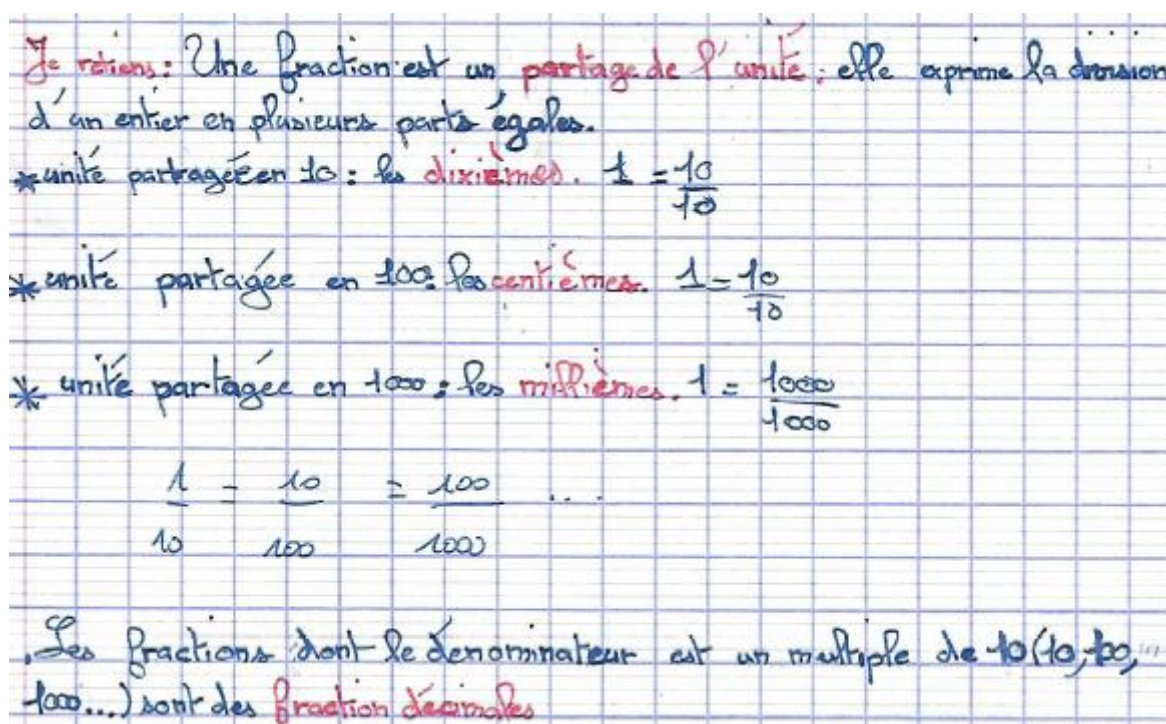 Je retiens: Une fraction est un partage de l'unité; elle exprime la division
d'un entier en plusieurs parts égales.
* unité partragée en 10: les dixièmes. 1 = 10/10
* unité partagée en 100: les centièmes. 1 = 10/10
* unité partagée en 1000: les millièmes. 1 = 1000/1000
1/10 = 10/100 = 100/1000 ...
. Les fractions dont le dénominateur est un multiple de 10 (10, 100,
1000...) sont des fraction décimales